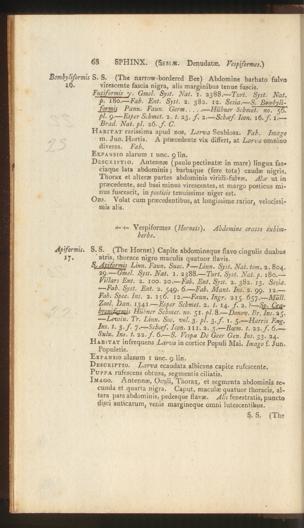 68 SPHINX. (SESIÆ. Denudatæ. Vespiformes.)
Bombyliformis S. S. (The narrow-bordered Bee) Abdomine barbato fulvo
16. virescente fascia nigra, alis marginibus tenue fuscis.
Fuciformis γ. Gmel. Syst. Nat. 1. 2388.—Turt. Syst. Nat.
p. 180.—Fab. Ent. Syst. 2. 382. 12. Sesia.—S. Bombyli-
formis Panz. Faun. Germ. . . . .—Hübner Schmet. no. 56.
pl. 9.—Esper Schmet. 2. t. 23. f. 2.—Schæf. Icon. 16. f. 1.—
Brad. Nat. pl. 26. f. C.
HABITAT rarissima apud nos, Larva Scabiosa. Fab. Imago
m. Jun. Hortis. A præcedente vix differt, at Larva omnino
diversa. Fab.
EXPANSIO alarum 1 unc. 9 lin.
DESCRIPTIO. Antennæ (paulo pectinatæ in mare) lingua fas-
ciaque lata abdominis; barbaque (fere tota) caudæ nigris,
Thorax et alteræ partes abdominis viridi-fulvæ. Alæ ut in
præcedente, sed basi minus virescentes, et margo posticus mi-
nus fuscescit, in posticis tenuissime niger est.
OBS. Volat cum præcedentibus, at longissime rarior, velocissi-
mis alis.
←← Vespiformes (Hornets). Abdomine crasso subim-
berbe.
Apiformis. S. S. (The Hornet) Capite abdomineque flavo cingulis duabus
17. atris, thorace nigro maculis quatuor flavis.
S. Apiformis Linn. Faun. Suec. Linn. Syst. Nat. tom. 2. 804.
29.—Gmel. Syst. Nat. 1. 2388.—Turt. Syst. Nat. p. 180.—
Villars Ent. 2. 100. 20.—Fab. Ent. Syst. 2. 382. 13. Sesia.
—Fab. Syst. Ent. 2. 549. 6.—Fab. Mant. Ins. 2. 99. 12.—
Fab. Spec. Ins. 2. 156. 12.—Faun. Ingr. 215. 657.—Müll.
Zool. Dan. 1341.—Esper Schmet. 2. t. 14. f. 2.—Sp. Cra-
broniformis Hübner Schmet. no. 51. pl. 8.—Donov. Br. Ins. 25.
—Lewin. Tr. Linn. Soc. vol. 3. pl. 3. f. 1. 5.—Harris Eng.
Ins. t. 3. f. 7.—Schæf. Icon. 111. 2. 3.—Rœm. t. 22. f. 6.—
Sulz. Ins. t. 22. f. 6.—S. Vespa De Geer Gen. Ins. 33. 24.
HABITAT infrequens Larva in cortice Populi Mai. Imago f. Jun.
Populetis.
EXPANSIO alarum 1 unc. 9 lin.
DESCRIPTIO. Larva ecaudata albicans capite rufescente.
PUPPA rufescens obtusa, segmentis ciliatis.
IMAGO. Antennæ, Oculi, Thorax, et segmenta abdominis se-
cunda et quarta nigra. Caput, maculæ quatuor thoracis, al-
tera pars abdominis, pedesque flavæ. Alis fenestratis, puncto
disci auticarum, venis margineque omni lutescentibus.
S. S. (The